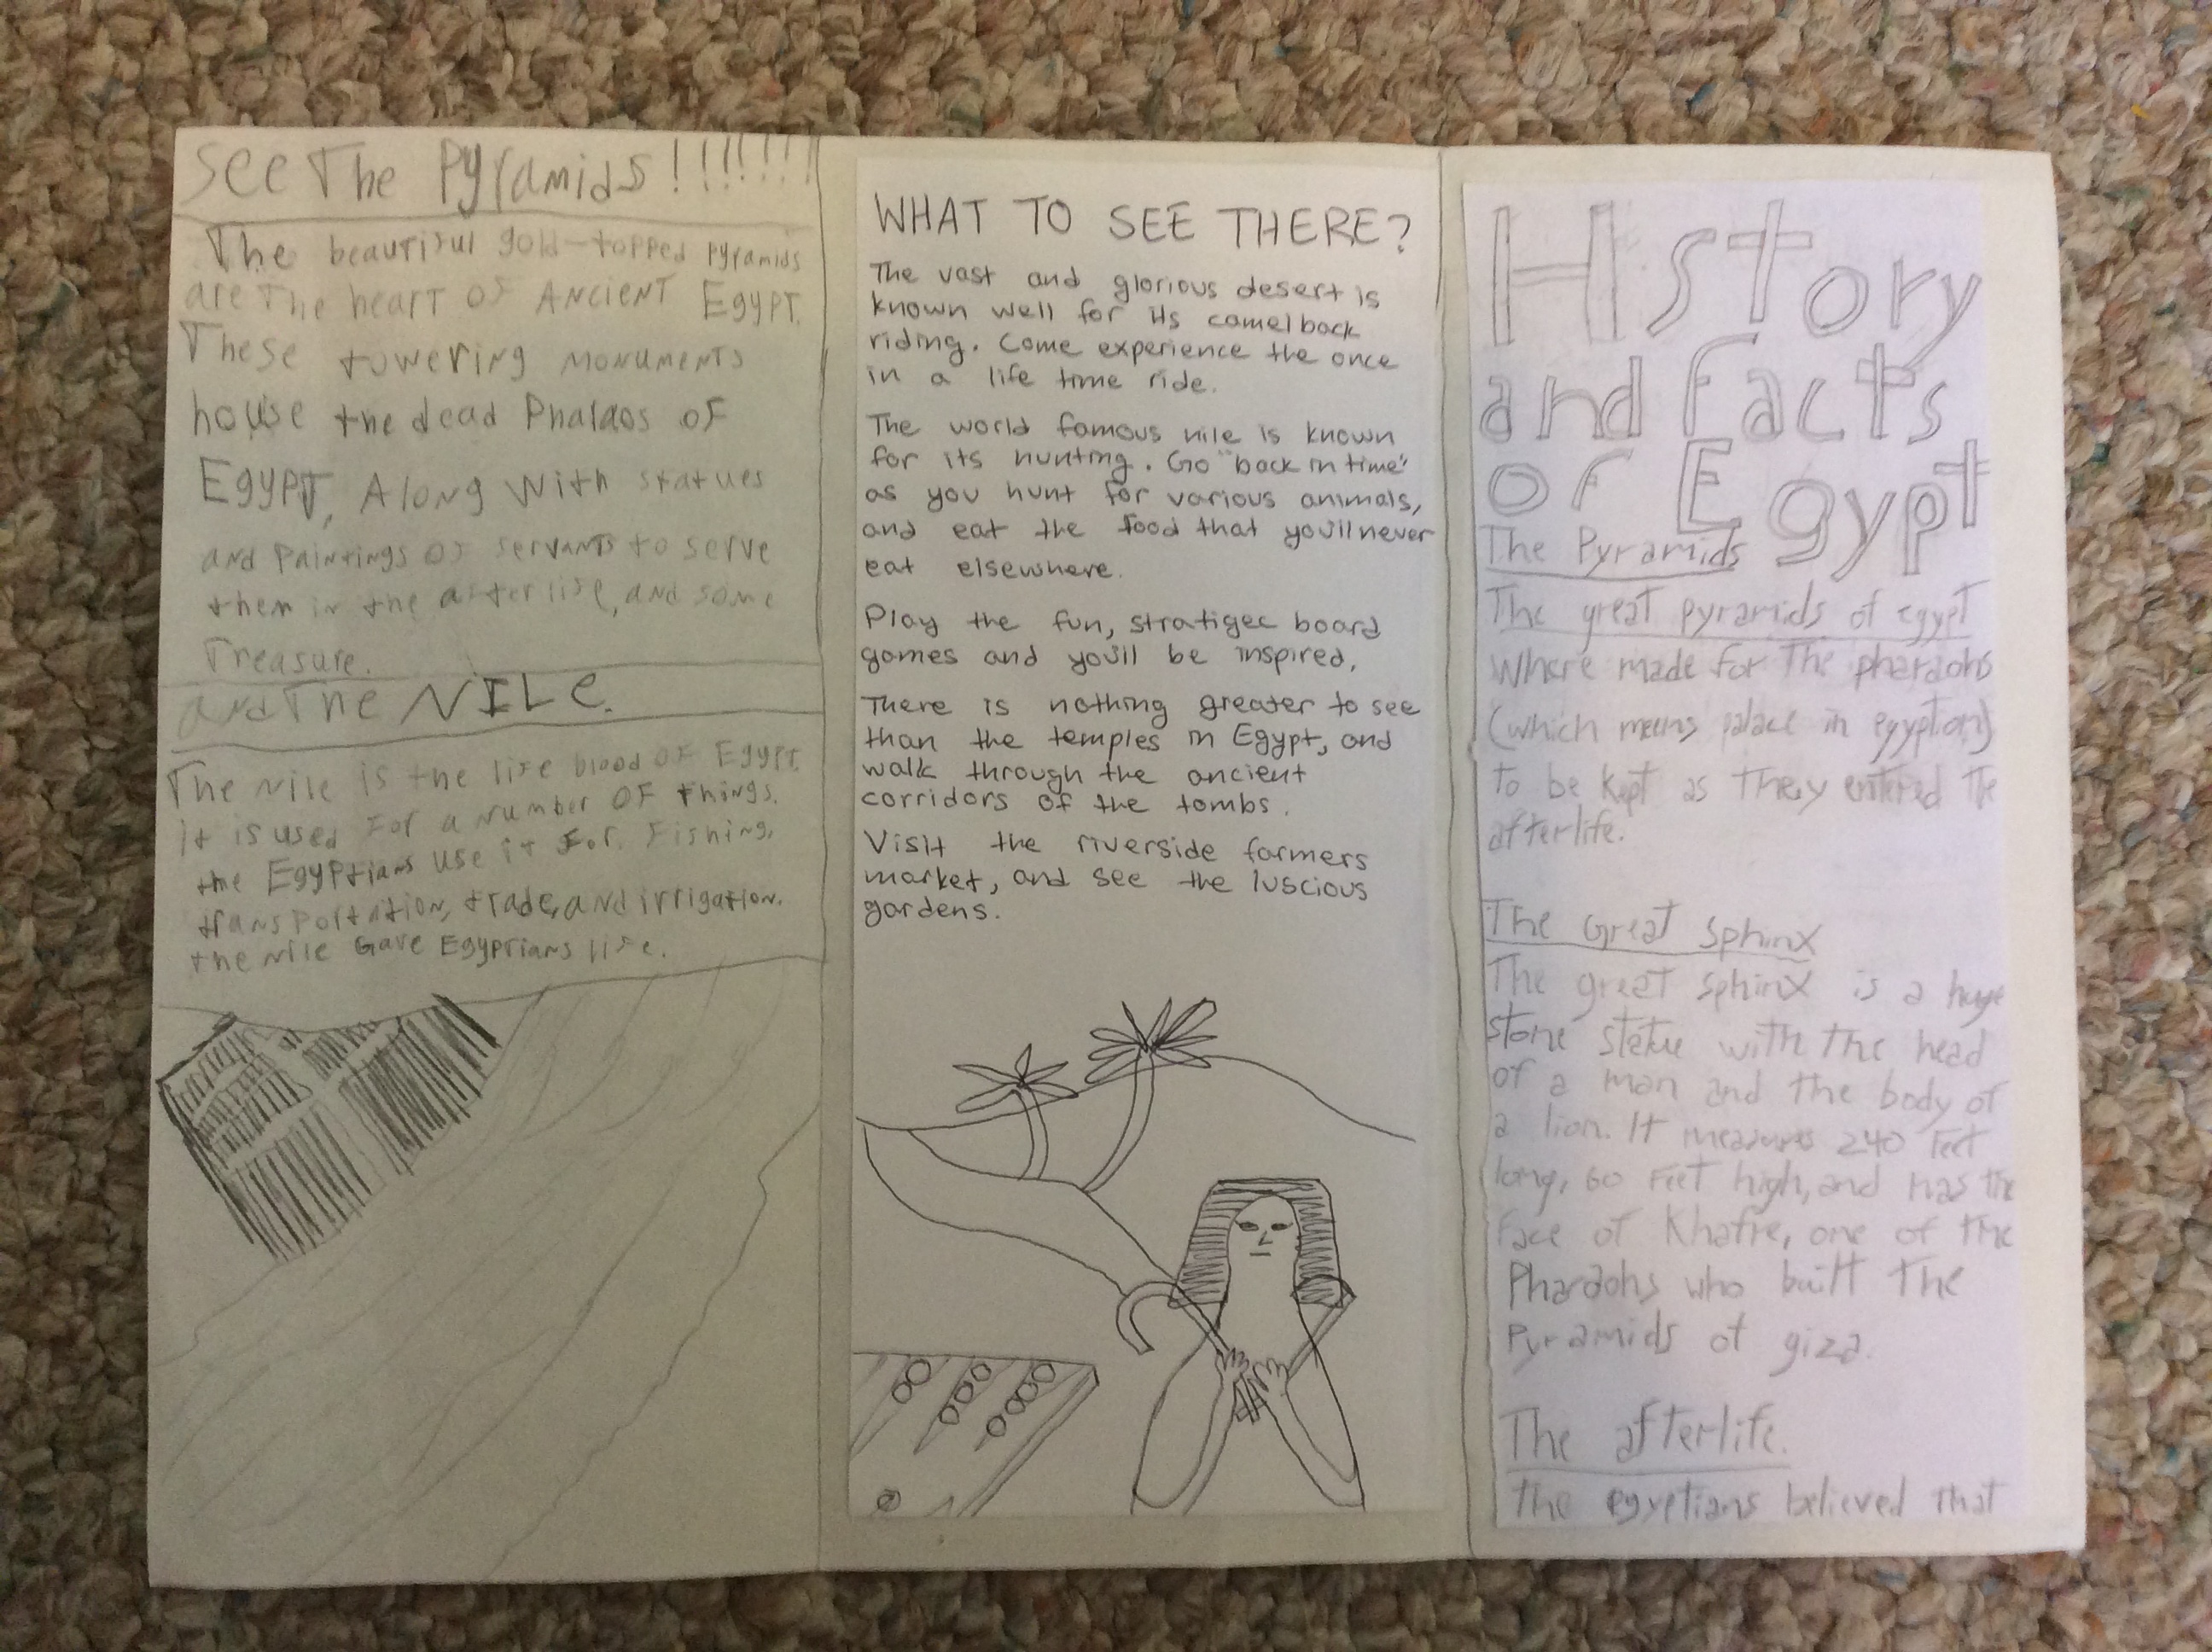 See The Pyramids!!!!!!!
The beautiful gold-topped pyramids
are The heart OF ANCIENT EGYPT.
These towering MONUMENTS
house the dead Pharaos OF
EGYPT, Along with statues
AND PAINTINGS OF SERVANTS to serve
them in the afterlife, AND some
Treasure.
and The NILE.
The Nile is the life blood OF EGYPT.
it is used FOR a number OF things.
the Egyptians use it For Fishing,
transportation, trade, and irrigation.
the Nile Gave Egyptians life.
WHAT TO SEE THERE?
The vast and glorious desert is
known well for its camelback
riding. Come experience the once
in a life time ride.
The world famous nile is known
for its hunting. Go "back in time"
as you hunt for various animals,
and eat the food that you'll never
eat elsewhere.
Play the fun, stratigec board
games and you'll be inspired.
There is nothing greater to see
than the temples in Egypt, and
walk through the ancient
corridors of the tombs.
Visit the riverside farmers
market, and see the luscious
gardens.
HStory
and facts
of Egypt
The Pyramids
The great pyramids of egypt
Where made for The pharaohs
(which means palace in egyption)
to be kept as They entered The
afterlife.
The Great Sphinx
The great sphinx is a huge
stone statue with The head
of a man and the body of
a lion. It measures 240 feet
long, 60 Feet high, and has the
face of Khafre, one of the
Pharaohs who built The
Pyramids of giza.
The afterlife.
The egyptians believed that